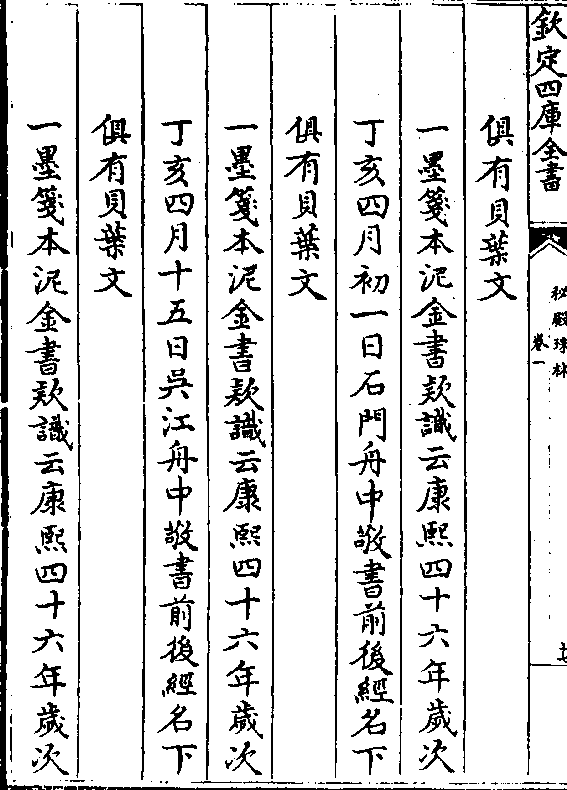 欽定四庫全書
祕殿珠林
卷一
俱有貝葉文
一墨箋本泥金書款識云康熙四十六年歲次
丁亥四月初一日石門舟中敬書前後經名下
俱有貝葉文
一墨箋本泥金書款識云康熙四十六年歲次
丁亥四月十五日吳江舟中敬書前後經名下
俱有貝葉文
一墨箋本泥金書款識云康熙四十六年歲次